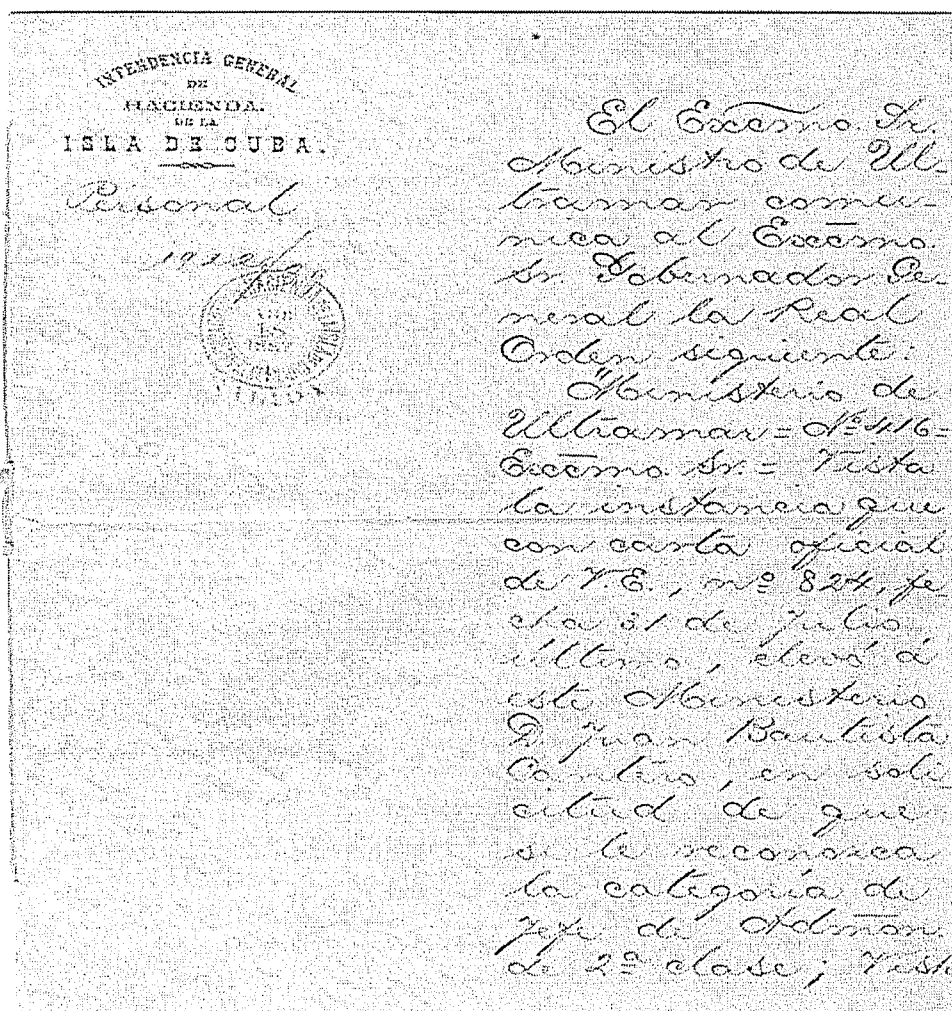 INTENDENCIA GENERAL
DE
HACIENDA.
DE LA
ISLA DE CUBA.
Personal
El Excmo. Sr.
Ministro de Ul-
tramar comu-
nica al Excmo.
Sr. Gobernador Ge-
neral la Real
Orden siguiente:
Ministerio de
Ultramar = Nº 416 =
Excmo. Sr. = Vista
la instancia que
con carta oficial
de V.E., nº 824, fe
cha 31 de Julio
último, elevó á
este Ministerio
D. Juan Bautista
Cantero, en soli
citud de que
se le reconozca
la categoría de
Jefe de Admón
de 2ª clase; Vist